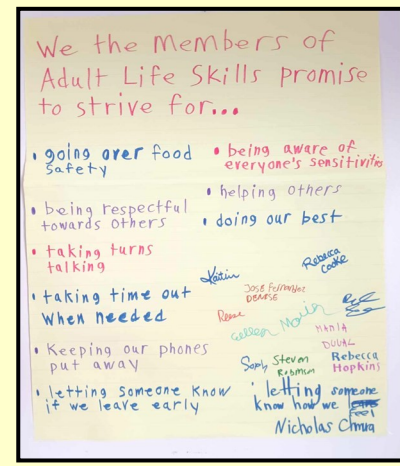 We the Members of
Adult Life Skills promise
to strive for...
• going over food
safety
• being respectful
towards others
• taking turns
talking
• taking time out
when needed
• Keeping our phones
put away
• letting someone know
if we leave early
• being aware of
everyone's sensitivities
• helping others
• doing our best
Kaitlin
Rebecca
Cooke
José Fernandez
DENISE
Reese
Colleen
Maria
MARIA
DUVAL
Sarah
Steven
Rebecca
Hopkins
• letting someone
know how we
feel
Nicholas Chmura